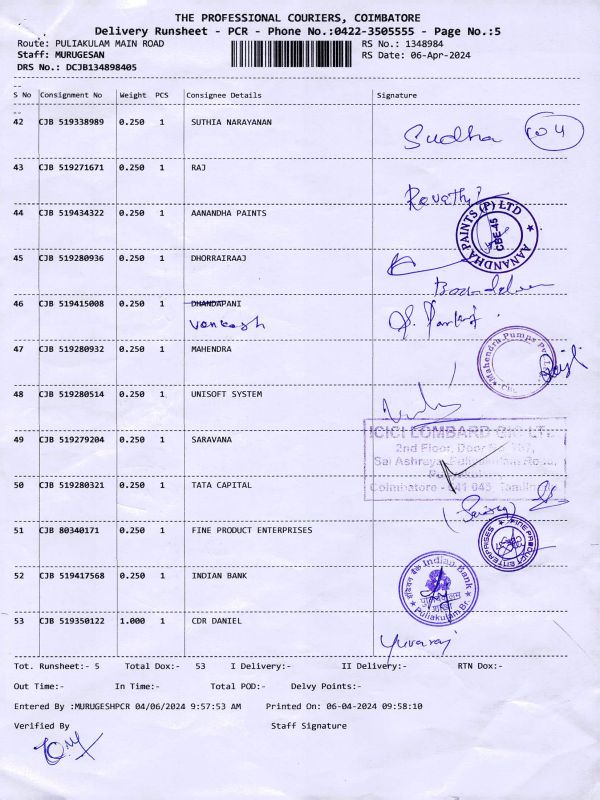 THE PROFESSIONAL COURIERS, COIMBATORE
Delivery Runsheet - PCR - Phone No.:0422-3505555 - Page No.:5
Route: PULIAKULAM MAIN ROAD RS No.: 1348984
Staff: MURUGESAN RS Date: 06-Apr-2024
DRS No.: DCJB134898405
S No Consignment No Weight PCS Consignee Details Signature
42 CJB 519338989 0.250 1 SUTHIA NARAYANAN Sudha
43 CJB 519271671 0.250 1 RAJ Revathy
44 CJB 519434322 0.250 1 AANANDHA PAINTS AANANDHA PAINTS (P) LTD CBE-45
45 CJB 519280936 0.250 1 DHORRAIRAAJ
46 CJB 519415008 0.250 1 DHANDAPANI
Venkash
47 CJB 519280932 0.250 1 MAHENDRA Mahendra Pumps
48 CJB 519280514 0.250 1 UNISOFT SYSTEM
49 CJB 519279204 0.250 1 SARAVANA
ICICI LOMBARD
2nd Floor, Door
50 CJB 519280321 0.250 1 TATA CAPITAL Coimbatore - 641 045
51 CJB 80340171 0.250 1 FINE PRODUCT ENTERPRISES FINE PRODUCT ENTERPRISES
52 CJB 519417568 0.250 1 INDIAN BANK इंडियन बैंक Indian Bank Puliakulam Br.
53 CJB 519350122 1.000 1 CDR DANIEL Yuvaraj
Tot. Runsheet:- 5 Total Dox:- 53 I Delivery:- II Delivery:- RTN Dox:-
Out Time:- In Time:- Total POD:- Delvy Points:-
Entered By :MURUGESHPCR 04/06/2024 9:57:53 AM Printed On: 06-04-2024 09:58:10
Verified By Staff Signature